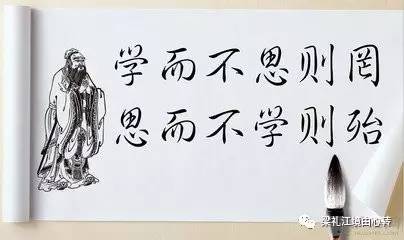 学而不思则罔
思而不学则殆
梁礼江境由心转